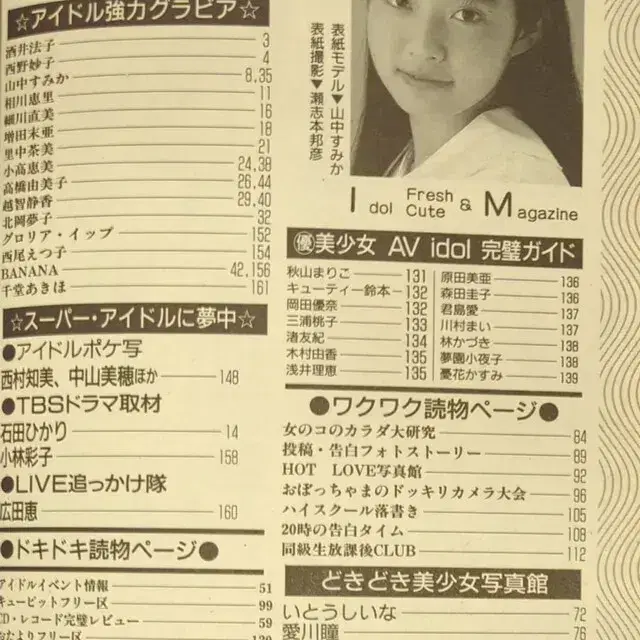 ☆アイドル強力グラビア☆
酒井法子 3
西野妙子 4
山中すみか 8,35
相川恵里 11
細川直美 16
増田未亜 18
里中茶美 21
小高恵美 24,38
高橋由美子 26,44
越智静香 29,40
北岡夢子 32
グロリア・イップ 152
西尾えつ子 154
BANANA 42,156
千堂あきほ 161
☆スーパー・アイドルに夢中☆
●アイドルポケ写
西村知美、中山美穂ほか 148
●TBSドラマ取材
石田ひかり 14
小林彩子 158
●LIVE追っかけ隊
広田恵 160
●ドキドキ読物ページ●
アイドルイベント情報 51
キューピットフリー区 99
CD・レコード完璧レビュー 59
おたよりフリー区
表紙モデル▼山中すみか
表紙撮影▼瀬志本邦彦
Idol Fresh & Cute Magazine
優美少女 AV idol 完璧ガイド
秋山まりこ 131
キューティー鈴木 132
岡田優奈 132
三浦桃子 133
渚友紀 134
木村由香 135
浅井理恵 135
原田美亜 136
森田圭子 136
君島愛 137
川村まい 137
林かづき 138
夢園小夜子 138
憂花かすみ 139
●ワクワク読物ページ●
女のコのカラダ大研究 84
投稿・告白フォトストーリー 89
HOT LOVE写真館 92
おぼっちゃまのドッキリカメラ大会 96
ハイスクール落書き 105
20時の告白タイム 108
同級生放課後CLUB 112
どきどき美少女写真館
いとうしいな 72
愛川瞳 76